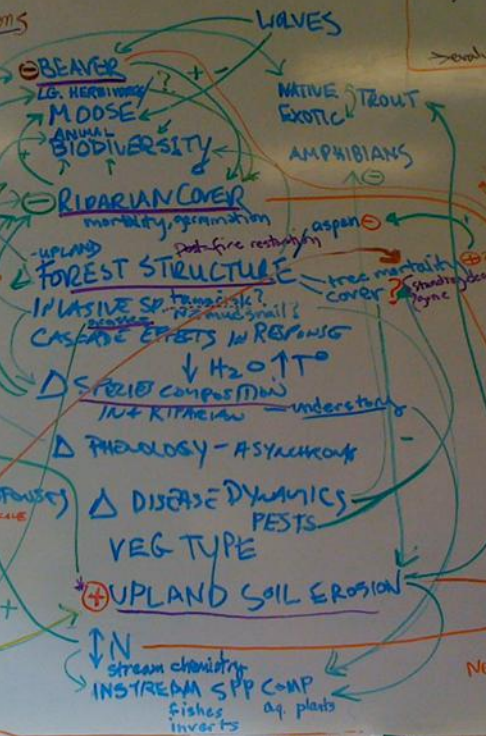 WOLVES
⊖ BEAVER
+ -
LG. HERBIVORES ?
MOOSE
NATIVE
EXOTIC TROUT
ANIMAL
BIODIVERSITY
AMPHIBIANS
⊖
⊖ RIPARIAN COVER
mortality, germination
aspen ⊖
post-fire restoration
-UPLAND
FOREST STRUCTURE
tree mortality
cover ?
standing dead
INVASIVE SP. tamarisk?
NZ mudsnail?
CASCADE EFFECTS IN RESPONSE
↓ H2O ↑ T°
Δ SPECIES COMPOSITION
INT RIPARIAN - understory
-
Δ PHENOLOGY - ASYNCHRONY
Δ DISEASE DYNAMICS
PESTS
VEG TYPE
⊕ UPLAND SOIL EROSION
+
↕ N
stream chemistry
INSTREAM SPP COMP
fishes aq. plants
inverts